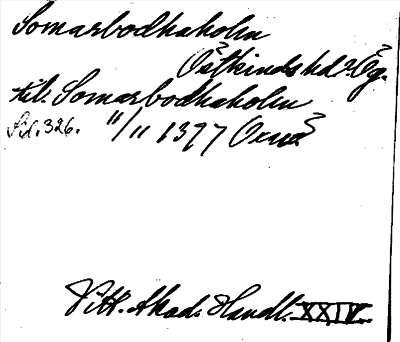 Somarbodhaholm
Östkinds hd Ög.
til. Somarbodhaholm
Sid. 326. 11/11 1397 Ornö
Vitt. Akad. Handl. XXIV.